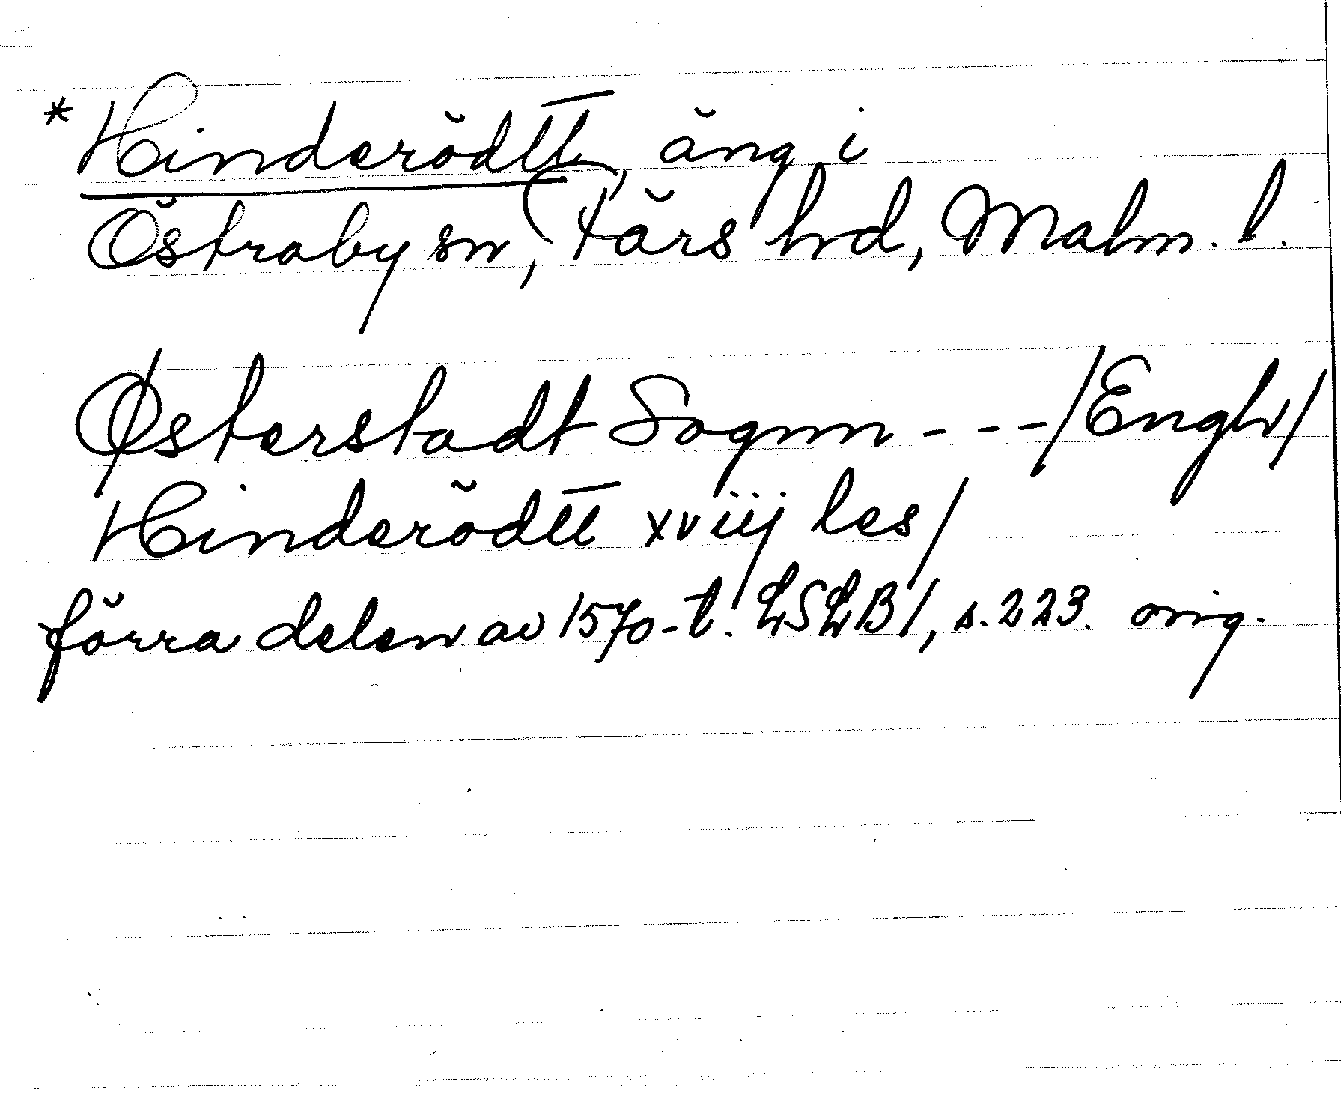 *Hinderödtt, äng i
Östraby sn, Färs hd, Malm. l.
Østerstadt Sognn - - - / Engh /
Hinderödtt xviij les /
förra delen av 1570-t. LSLB 1, s. 223. orig.